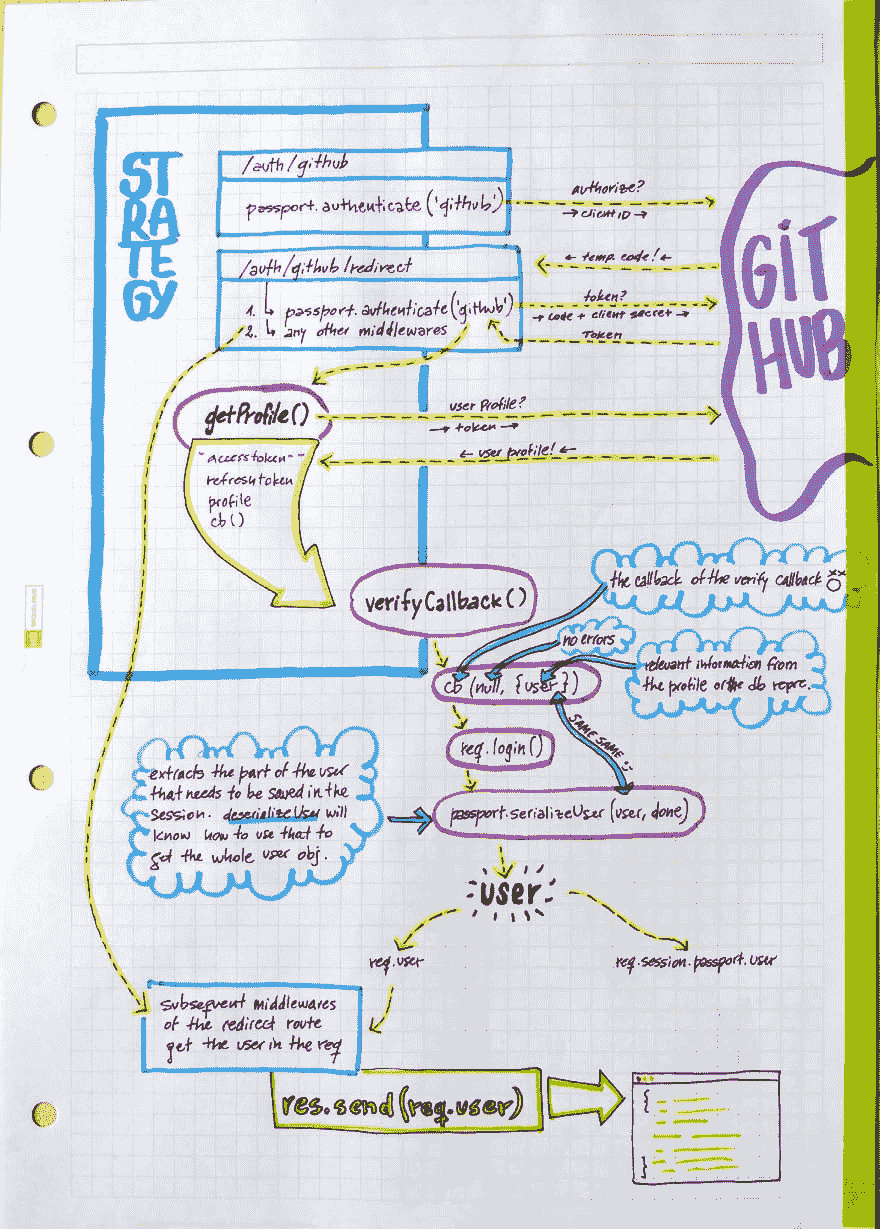 STRATEGY
/auth/github
passport.authenticate('github')
authorize?
→ client ID →
/auth/github/redirect
← temp. code! ←
1. ↳ passport.authenticate('github')
2. ↳ any other middlewares
token?
→ code + client secret →
Token
GITHUB
getProfile()
user Profile?
→ token →
← user profile! ←
access token
refresh token
profile
cb()
verifyCallback()
the callback of the verify callback
no errors
cb (null, {user})
relevant information from
the profile or the db repre.
req.login()
SAME SAME
extracts the part of the user
that needs to be saved in the
session. deserializeUser will
know how to use that to
get the whole user obj.
passport.serializeUser(user, done)
user
req.user
req.session.passport.user
subsequent middlewares
of the redirect route
get the user in the req
res.send(req.user)
{
}